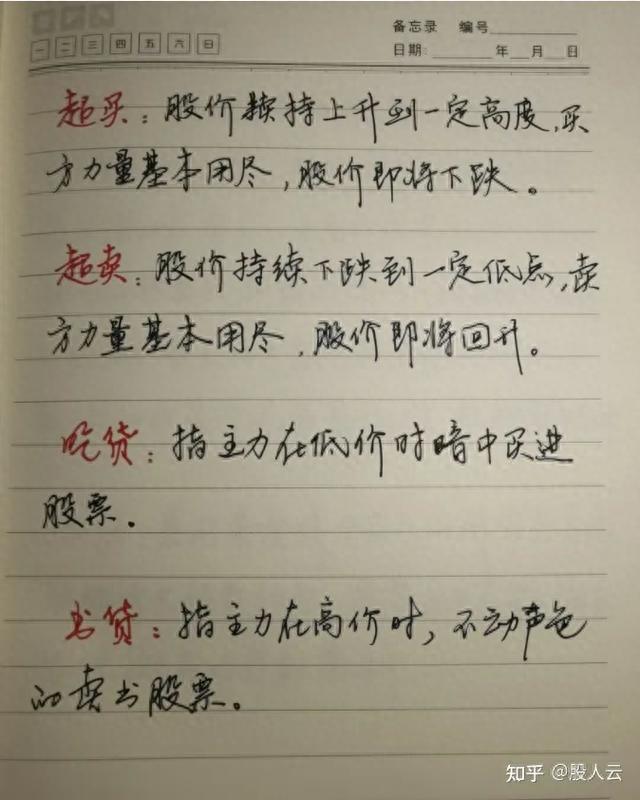 备忘录 编号
一 二 三 四 五 六 日
日期: 年 月 日
超买：股价续持上升到一定高度，买
方力量基本用尽，股价即将下跌。
超卖：股价持续下跌到一定低点，卖
方力量基本用尽，股价即将回升。
吃货：指主力在低价时暗中买进
股票。
出货：指主力在高价时，不动声色
的卖出股票。
知乎 @股人云